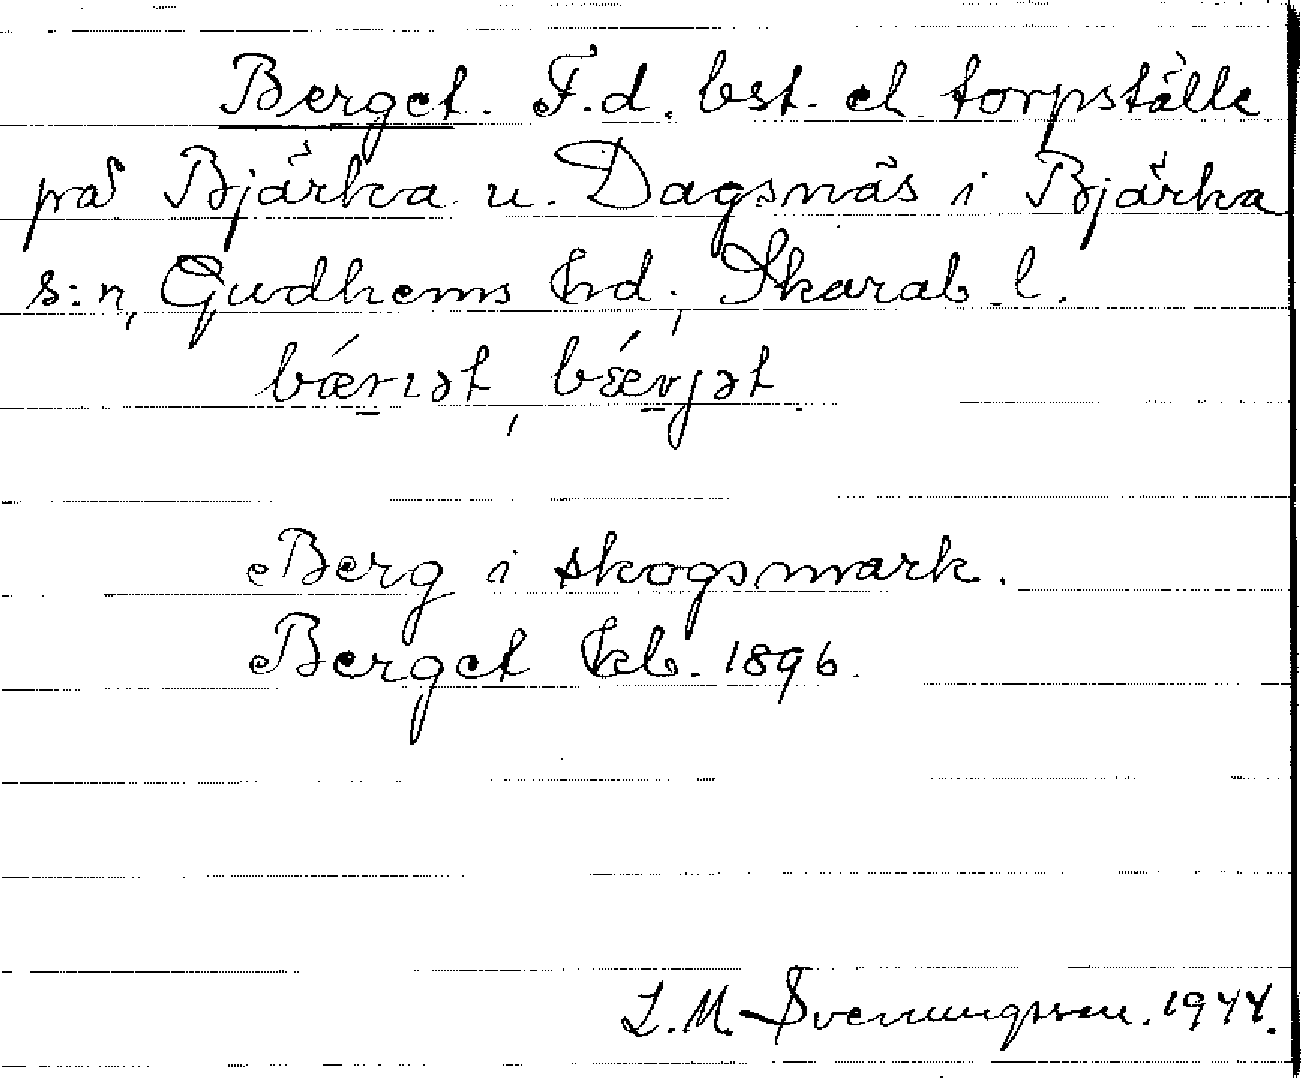 Berget. F.d. bst. el torpställe
på Bjärka u. Dagsnäs i Bjärka
s:n, Gudhems hd, Skarab. l.
bǽrıət, bǽrjət
Berg i skogsmark.
Berget kb. 1896.
L.M. Svenungsson. 1944.